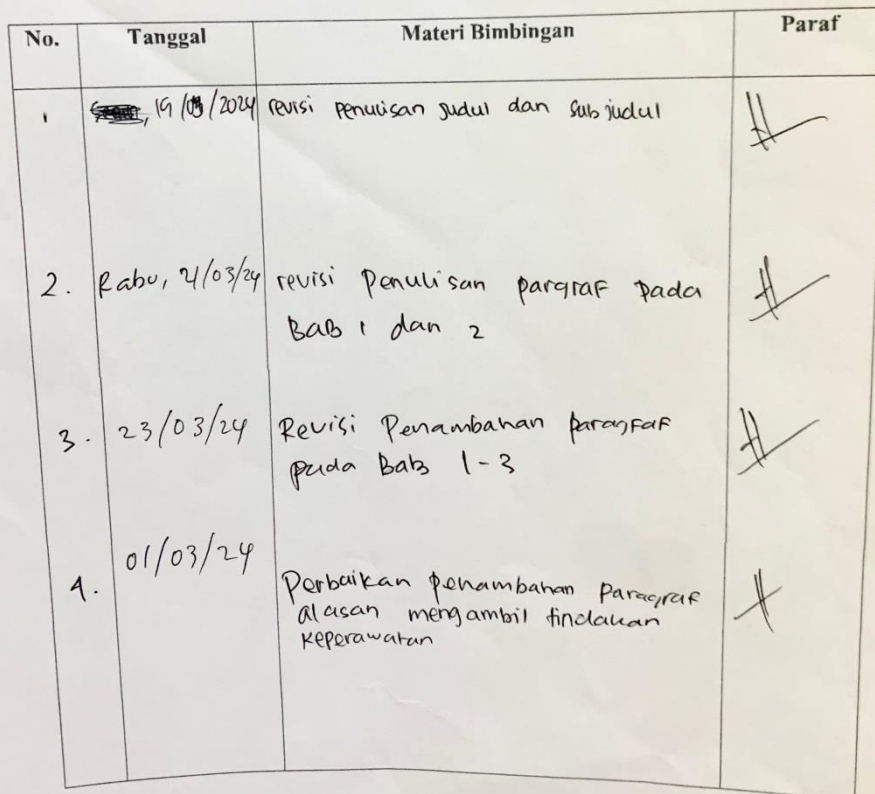 No. Tanggal Materi Bimbingan Paraf
1 , 19/03/2024 revisi penulisan judul dan sub judul
2. Rabu, 21/03/24 revisi Penulisan pargraf pada
BAB 1 dan 2
3. 23/03/24 Revisi Penambahan paragraf
pada Bab 1-3
4. 01/03/24
Perbaikan penambahan Paragraf
alasan mengambil tindakan
keperawatan